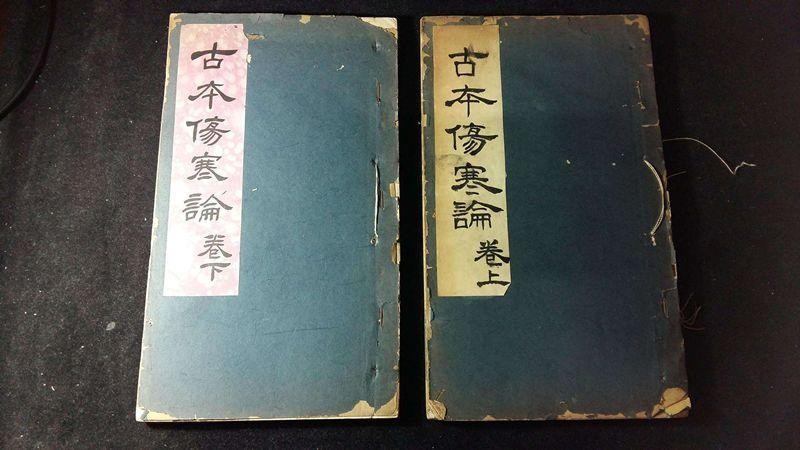 古本傷寒論卷上
古本傷寒論卷下